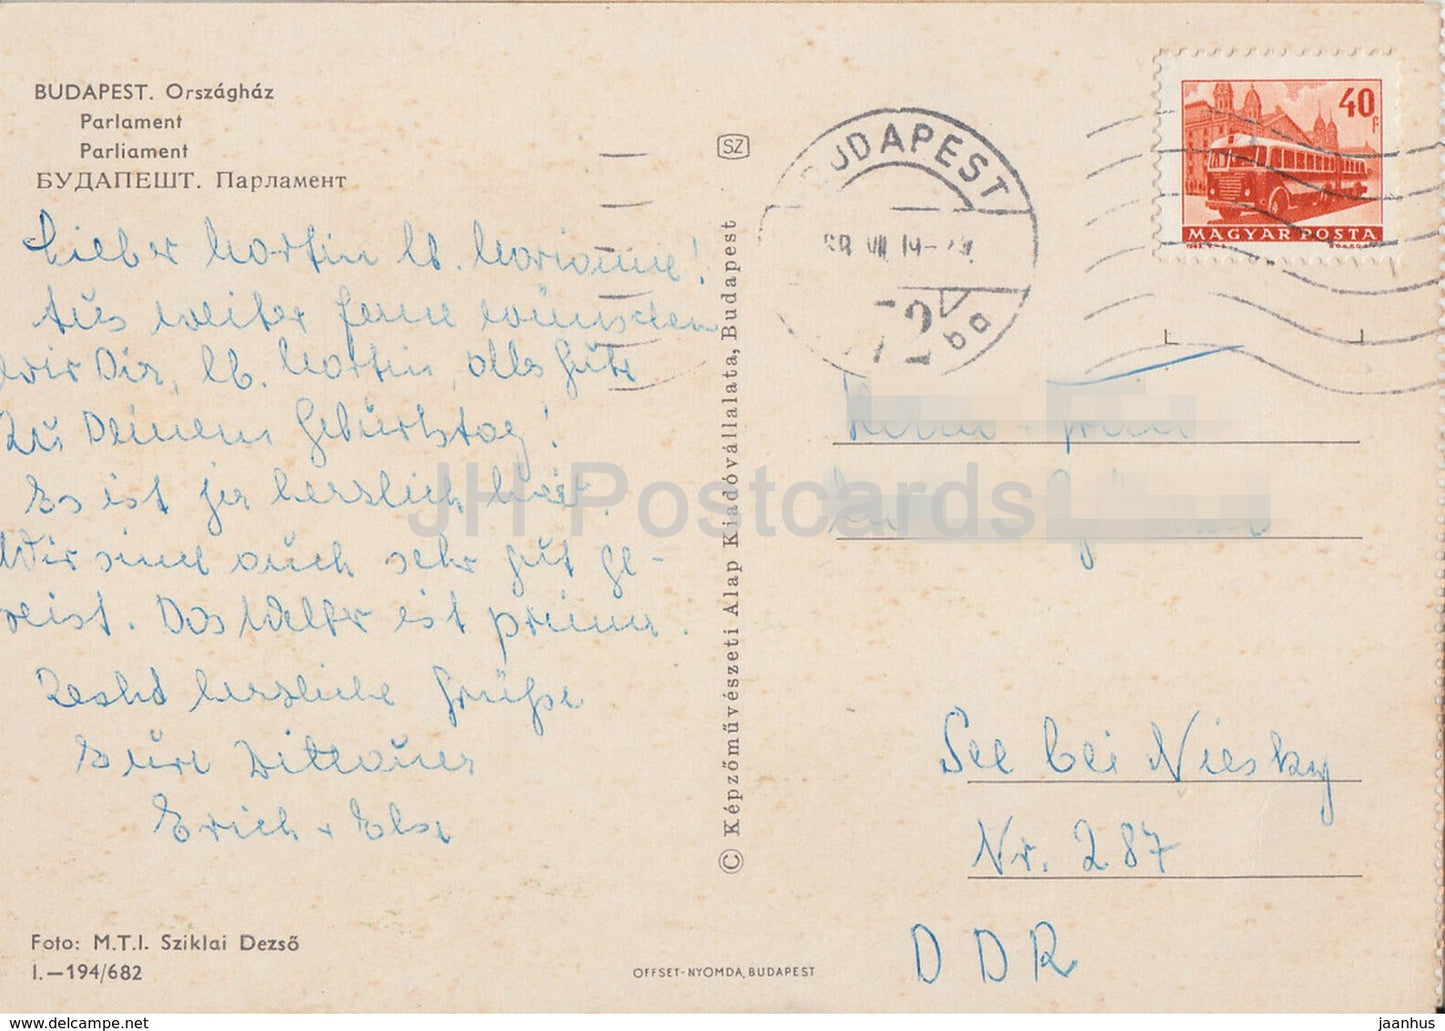 BUDAPEST. Országház
Parlament
Parliament
БУДАПЕШТ. Парламент
Lieber Martin lb. Marianne!
Aus weiter Ferne wünschen
wir Dir, lb. Martin, alles Gute
zu Deinem Geburtstag!
Es ist ja herzlich
Wir sind auch sehr gut ge-
reist. Das Wetter ist prima.
herzliche Grüße
Eure
Erich + Elsa
Foto: M.T.I. Sziklai Dezső
I.–194/682
SZ
© Képzőművészeti Alap Kiadóvállalata, Budapest
OFFSET-NYOMDA, BUDAPEST
BUDAPEST
72
40f
MAGYAR POSTA
See bei Niesky
Nr. 287
DDR
JH Postcards
www.delcampe.net
jaanhus